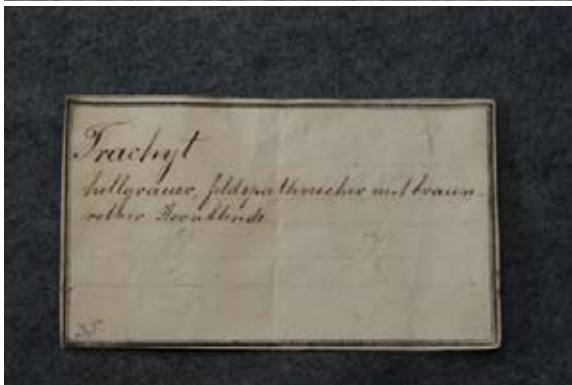 Trachyt
hellgrauer, feldspathreicher mit braun-
rother Hornblende